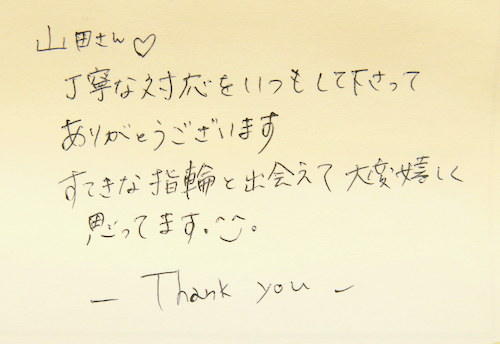 山田さん♡
丁寧な対応をいつもして下さって
ありがとうございます
すてきな指輪と出会えて大変嬉しく
思ってます。
— Thank you —